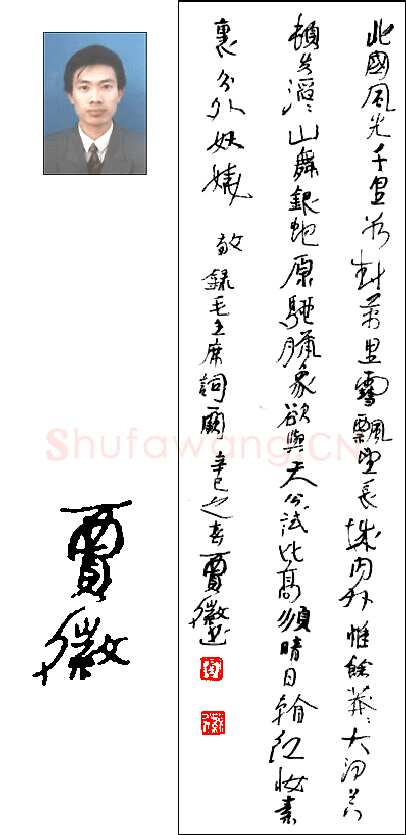 北國風光千里冰封萬里雪飄望長城内外惟餘莽ミ大河上下
頓失滔ミ山舞銀蛇原馳臘象欲與天公試比高須晴日看紅妝素
裹分外妖嬈 敬錄毛主席詞一闋 辛巳之春賈徽
賈徽
Shufawang.CN